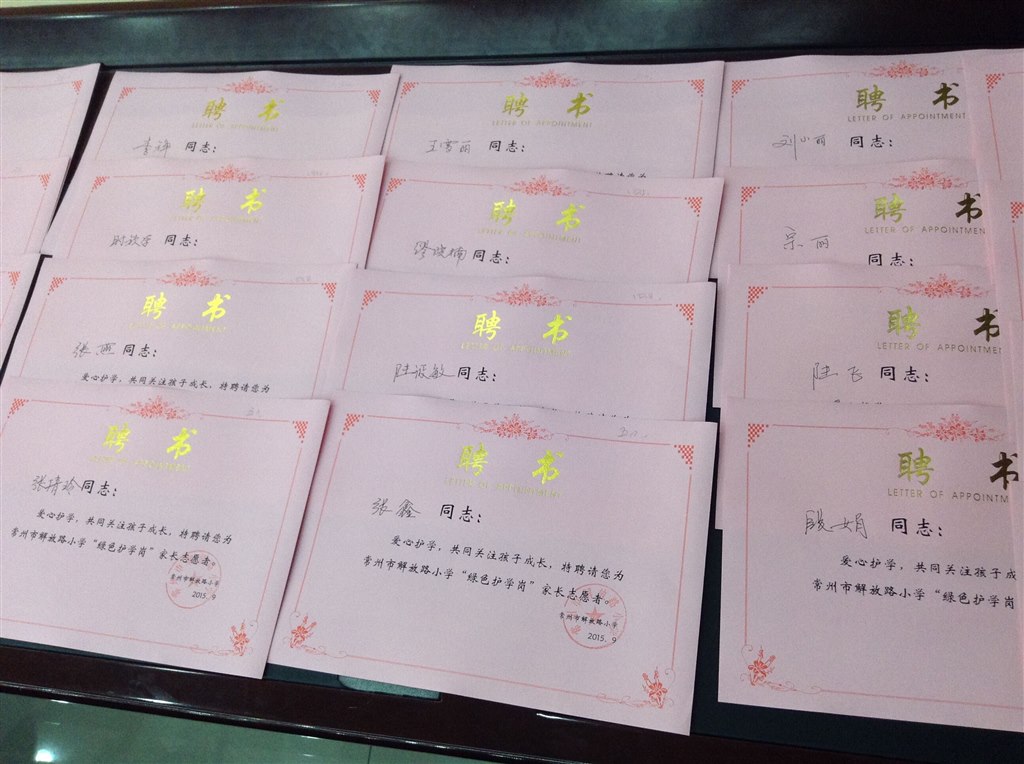 聘 书
LETTER OF APPOINTMENT
李 同志：
聘 书
LETTER OF APPOINTMENT
王雪丽 同志：
聘 书
LETTER OF APPOINTMENT
刘小丽 同志：
聘 书
LETTER OF APPOINTMENT
同志：
聘 书
LETTER OF APPOINTMENT
缪 楠 同志：
聘 书
LETTER OF APPOINTMEN
宗丽
同志：
聘 书
LETTER OF APPOINTMENT
张燕 同志：
爱心护学，共同关注孩子成长，特聘请您为
聘 书
LETTER OF APPOINTMENT
陆 敏 同志：
聘 书
LETTER OF APPOINTMEN
陆飞 同志：
聘 书
LETTER OF APPOINTMENT
张 玲 同志：
爱心护学，共同关注孩子成长，特聘请您为
常州市解放路小学“绿色护学岗”家长志愿者。
常州市解放路小学
2015.9
聘 书
LETTER OF APPOINTMENT
张鑫 同志：
爱心护学，共同关注孩子成长，特聘请您为
常州市解放路小学“绿色护学岗”家长志愿者。
常州市解放路小学
2015.9
聘 书
LETTER OF APPOINTM
殷文娟 同志：
爱心护学，共同关注孩子成
常州市解放路小学“绿色护学岗